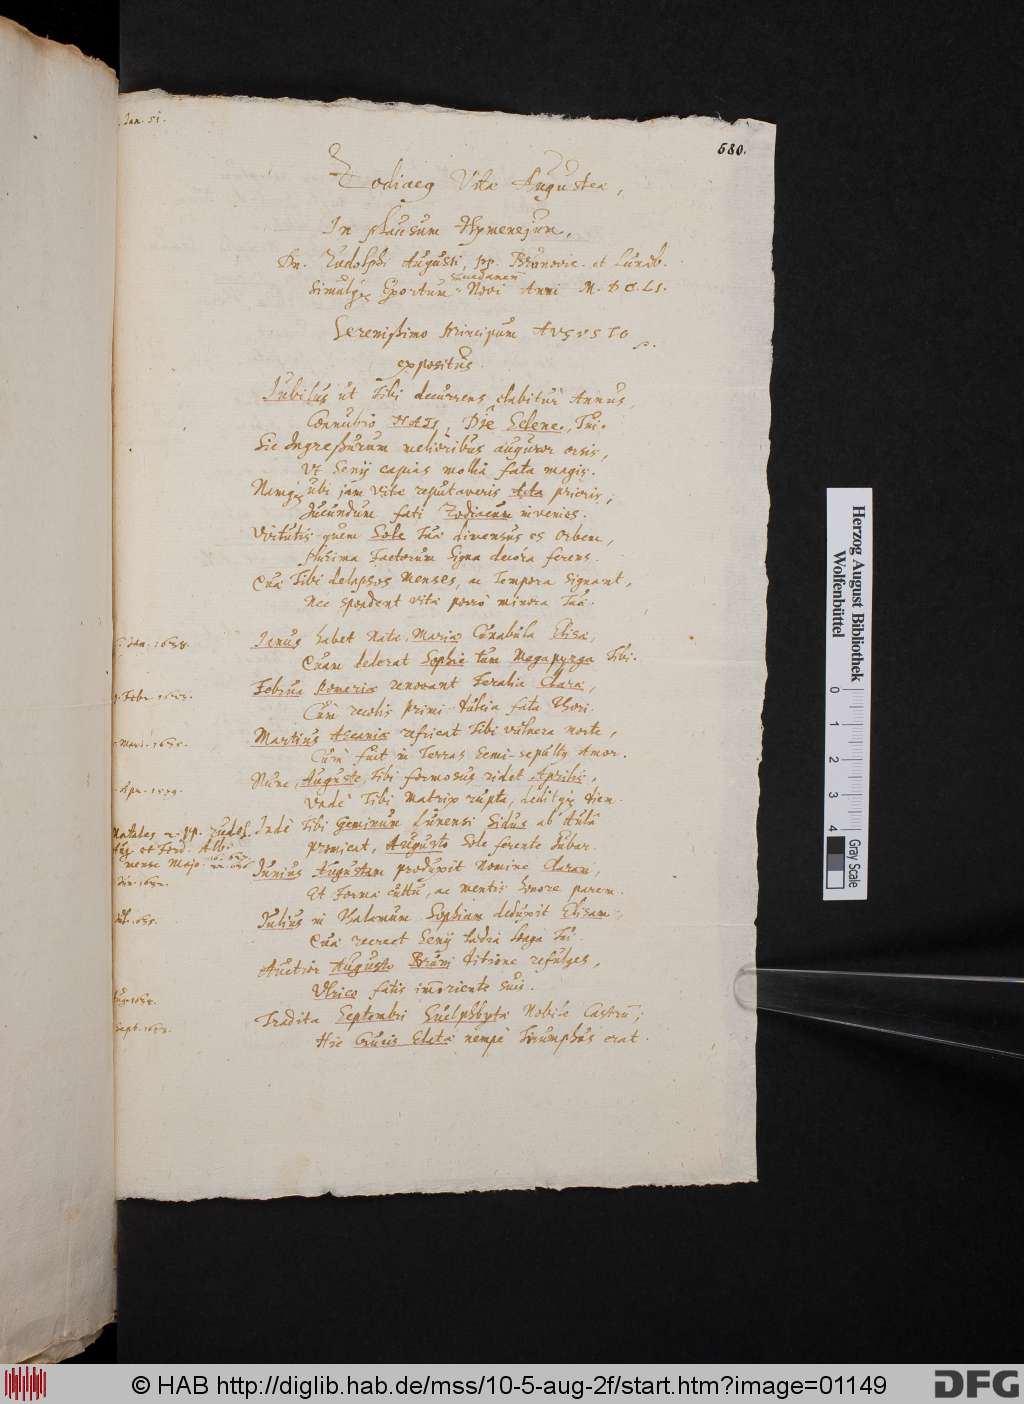 Jan. 51.
580.
Zodiacq Vitæ Augusteæ,
In plausum Hymenejum,
Dn. Rudolphi Augusti, pp. Brunovic. et Lunæb.
Simulq3 Exortum Novi Anni M. D C. LI.
Serenißimo Principum AVGVSTO
expositus.
Jubilus ut Tibi decurrens elabitur Annus,
Connubio NATI, Die Selene, Tui.
Sic Ingreßurum melioribus auguror orsis,
Vt Senij capias mollia fata magis.
Namq3 ubi jam Vitæ reputaveris Acta prioris,
Jucundum fati Zodiacum invenies.
Virtutis quem Sole Tuâ dimensus es Orbem,
plurima Factorum Signa decora ferens.
Quæ Tibi delapsos Menses, ac Tempora signant,
Nec spondent vitæ porrò minora Tuæ.
Jan. 1658.
Janus habet Natæ, Mariæ Cunabula Elisæ,
Quam delerat Sophie tum Magapyrga Tibi.
Febr.
Februa Pomeriæ renovant Feralia Claræ,
Cùm recolis primi tristia fata Thori.
Mart.
Martius Ascaniæ refricat Tibi vulnera morte,
Cùm fuit in Terras Semi-sepultus Amor.
Apr. 1579.
Nunc, Auguste, Tibi formosus ridet Aprilis,
Vndè Tibi Matrix rupta, deditq3 diem.
Natales
pp. Rudol.
Aug et Ferd. Albi
mense Majo
Indè Tibi Geminum Lunensi Sidus ab Aulâ
Promicat, Augusto Sole ferente Jubar.
Junius Augustam produxit Nomine Claram,
Et Forma cultu, ac mentis honore parem.
Julius in Thalamum Sophiam deduxit Elisam,
Quæ recreet Senij tædia longa Tui.
Auctior Augusto Bruni ditione refulges,
Vlrico fatis immoriente suis.
Sept.
Tradita Septembri Guelphbyta Nobile Castrum,
Hic Crucis Elatæ nempè Triumphus erat.
Herzog August Bibliothek
Wolfenbüttel
0 1 2 3 4
Gray Scale
© HAB http://diglib.hab.de/mss/10-5-aug-2f/start.htm?image=01149
DFG